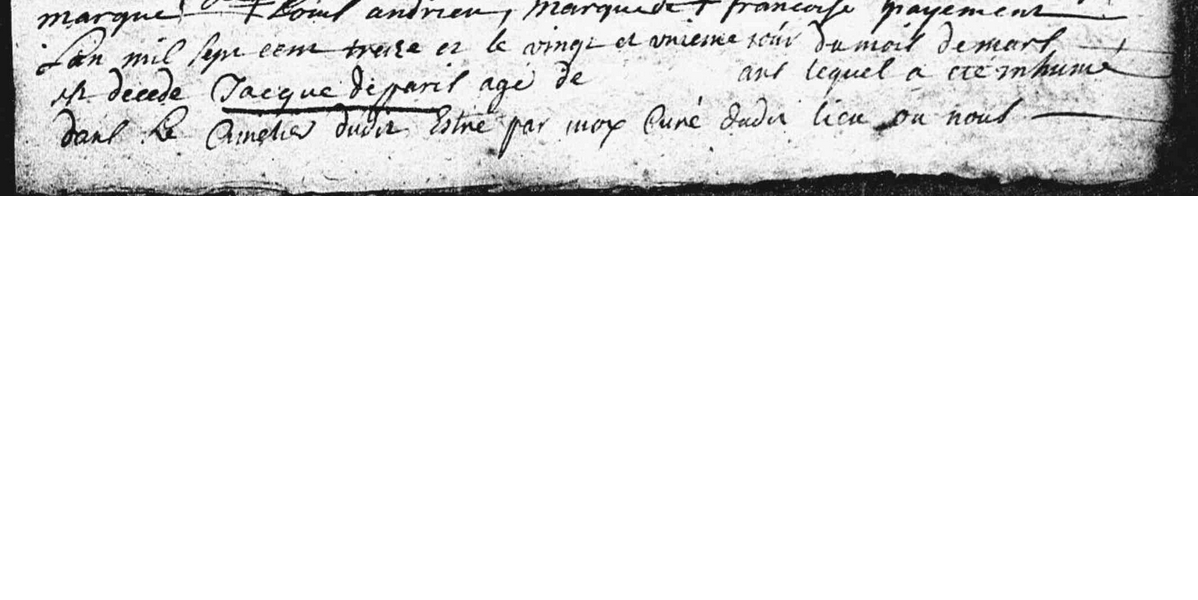 marque + Louis andrieu, Marque de + francoise payement
Lan mil sept cent treize et le vingt et unieme jour du mois de mars
est décédé Jacque de paris agé de ans lequel a eté inhumé
dans le Cimetier dudit Estré par moy Curé dudit lieu ou nous